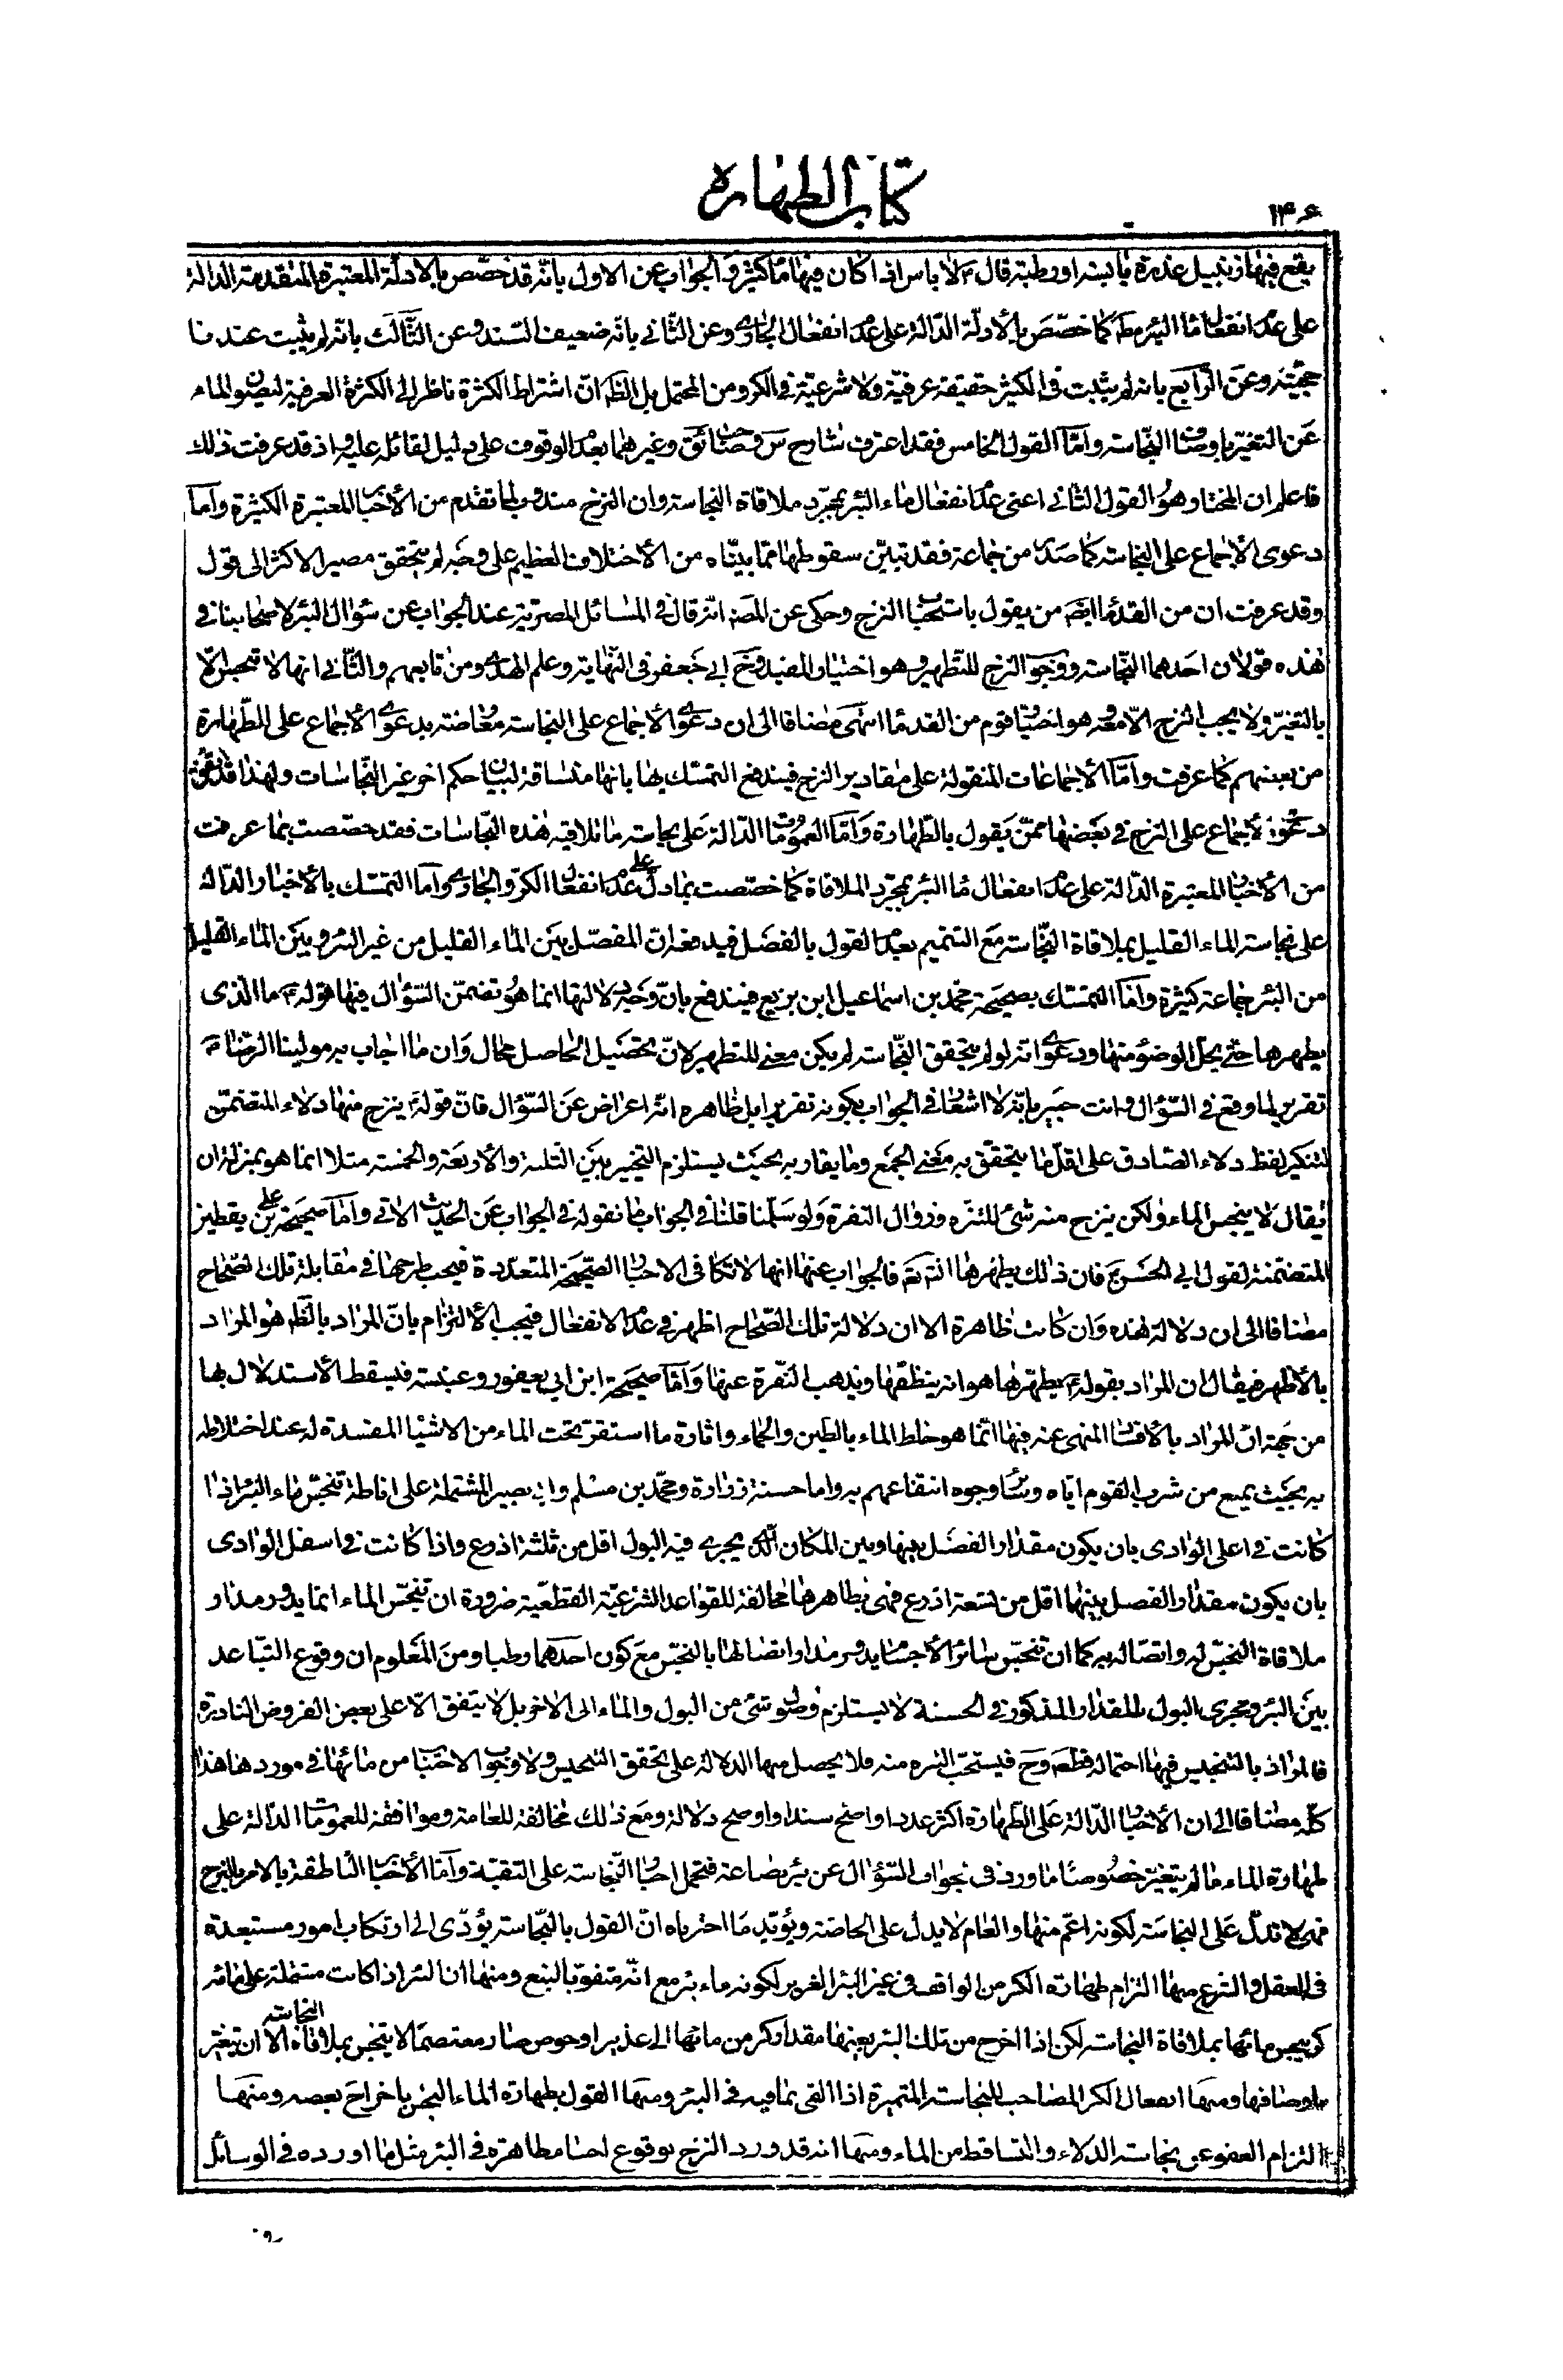 كتاب الطهارة
١٤٦
يقع فيها زنبيل عذرة يابسة او رطبة قال ع لا باس اذا كان فيها ماء كثير والجواب عن الاول بانه قد خصص بالادلة المعتبرة المتقدمة الدالة
على عدم انفعال ماء البئر مط كما خصص بالأدلة الدالة على عدم انفعال الجاري وعن الثاني بانه ضعيف السند وعن الثالث بانه لم يثبت عندنا
حجيته وعن الرابع بانه لم يثبت في الكثير حقيقة عرفية ولا شرعية في الكر ومن المحتمل بل الظ ان اشتراط الكثرة ناظر الى الكثرة العرفية لصون الماء
عن التغير باوصاف النجاسة وامّا القول الخامس فقد اعترف شارح س وصاحب ئق وغيرهما بعدم الوقوف على دليل لقائله عليه اذ قد عرفت ذلك
فاعلم ان المختار هو القول الثاني اعنى عدم انفعال ماء البئر بمجرد ملاقاة النجاسة وان النزح مندوب لما تقدم من الأخبار المعتبرة الكثيرة وامّا
دعوى الأجماع على النجاسة كما صدر من جماعة فقد تبين سقوطها مما بيناه من الأختلاف العظيم على وجه لم يتحقق مصير الاكثر الى قول
وقد عرفت ان من القدماء ايضا من يقول باستحباب النزح وحكى عن المصنف انه قال في المسائل المصرية عند الجواب عن سؤال البئر لاصحابنا في
هذه قولان احدهما النجاسة ووجوب النزح للتطهير وهو اختيار المفيد وخ ابي جعفر في النهاية وعلم الهدى ومن تابعهم والثاني انها لا تنجس الا
بالتغير ولا يجب النزح الا معه وهو اختيار قوم من القدماء انتهى مضافا الى ان دعوى الأجماع على النجاسة معارضة بدعوى الأجماع على الطهارة
من بعضهم كما عرفت وامّا الأجماعات المنقولة على مقادير النزح فيندفع التمسك بها بانها منساقة لبيان حكم اخر غير النجاسات ولهذا قد وقع
دعوى الأجماع على النزح في بعضها ممن يقول بالطهارة وامّا العمومات الدالة على نجاسة ما تلاقيه هذه النجاسات فقد خصصت بما عرفت
من الأخبار المعتبرة الدالة على عدم انفعال ماء البئر بمجرد الملاقاة كما خصصت بما دل على عدم انفعال الكر والجاري وامّا التمسك بالأخبار الدالة
على نجاسة الماء القليل بملاقاة النجاسة مع التتميم بعدم القول بالفصل فيدفعه ان المفصل بين الماء القليل من غير البئر وبين الماء القليل
من البئر جماعة كثيرة وامّا التمسك بصحيحة محمد بن اسماعيل ابن بزيع فيندفع بان وجه دلالتها انما هو تضمن السؤال فيها قوله ما الذى
يطهرها حتى يحل الوضوء منها ودعوى انه لو لم يتحقق النجاسة لم يكن معنى للتطهير لان تحصيل الحاصل محال وان ما اجاب به مولينا الرضا ع
تقرير لما وقع في السؤال وانت خبير بانه لا اشعار في الجواب بكونه تقريرا بل ظاهره انه اعراض عن السؤال فان قوله ع ينزح منها دلاء المتضمن
لتنكير لفظ دلاء الصادق على اقل ما يتحقق به معنى الجمع وما يقاربه بحيث يستلزم التخيير بين الثلثة والأربعة والخمسة مثلا انما هو بمنزلة ان
يقال لا ينجس الماء ولكن ينزح منه شئ للتنزه وزوال النفرة ولو سلمنا قلنا في الجواب ما نقوله في الجواب عن الحديث الاتي وامّا صحيحة على بن يقطين
المتضمنة لقول ابي الحسن ع فان ذلك يطهرها انشاء الله تع فالجواب عنها انها لا تكافى الاخبار الصحيحة المتعددة فيجب طرحها في مقابلة تلك الصحاح
مضافا الى ان دلالة هذه وان كانت ظاهرة الا ان دلالة تلك الصحاح اظهر في عدم الانفعال فيجب الألتزام بان المراد بالظ هو المراد
بالأظهر فيقال ان المراد بقوله ع يطهرها هو انه ينظفها ويذهب النفرة عنها وامّا صحيحة ابن ابي يعفور وعنبسة فيسقط الأستدلال بها
من جهة ان المراد بالأفساد المنهى عنه فيها انما هو خلط الماء بالطين والحماء واثارة ما استقر تحت الماء من الاشياء المفسدة له عند اختلاطه
به بحيث يمنع من شرب القوم اياه وسائر وجوه انتفاعهم به واما حسنة زرارة ومحمد بن مسلم وابي بصير المشتملة على اناطة تنجس ماء البئر اذا
كانت في اعلى الوادى بان يكون مقدار الفصل بينها وبين المكان الذي يجرى فيه البول اقل من ثلثة اذرع واذا كانت في اسفل الوادى
بان يكون مقدار الفصل بينهما اقل من تسعة اذرع فهى بظاهرها مخالفة للقواعد الشرعية القطعية ضرورة ان تنجس الماء انما يدور مدار
ملاقاة النجس له واتصاله به كما ان تنجس سائر الأجسام يدور مدار اتصالها بالنجس مع كون احدهما رطبا ومن المعلوم ان وقوع التباعد
بين البئر ومجرى البول بالمقدار المذكور في الحسنة لا يستلزم وصول شئ من البول والماء الى الاخر بل لا يتفق الا على بعض الفروض النادرة
فالمراد بالتنجيس فيها احتماله قطعا وح فيستحب التنزه منه فلا يحصل منها الدلالة على تحقق التنجيس ولا وجوب الاجتناب من مائها في موردها هذا
كله مضافا الى ان الأخبار الدالة على الطهارة اكثر عددا واصح سندا واوضح دلالة ومع ذلك مخالفة للعامة وموافقة للعمومات الدالة على
طهارة الماء ما لم يتغير خصوصا ما ورد في جواب السؤال عن بئر بضاعة فتحمل اخبار النجاسة على التقية وامّا الأخبار الناطقة بالامر بالنزح
فهى لا تدل على النجاسة لكونه اعم منها والعام لا يدل على الخاص ويؤيد ما اخترناه ان القول بالنجاسة يؤدى الى ارتكاب امور مستبعدة
في العقل والشرع منها التزام طهارة الكر من الواقف في غير البئر الغزير لكونه ماء بئر مع انه متقوى بالنبع ومنها ان البئر اذا كانت مشتملة على مائة
كر ينجس مائها بملاقاة النجاسة لكن اذا اخرج من تلك البئر بعينها مقدار كر من مائها الى غدير او حوض صار معتصما لا ينجس بملاقاة النجاسة الا ان يتغير
باوصافها ومنها انفعال الكر المصاحب للنجاسة المتميزة اذا القى بما فيه في البئر ومنها القول بطهارة الماء النجس باخراج بعضه ومنها
التزام العفو عن نجاسة الدلاء والمتساقط من الماء ومنها انه قد ورد النزح بوقوع اجسام طاهرة في البئر مثل ما اورده في الوسائل